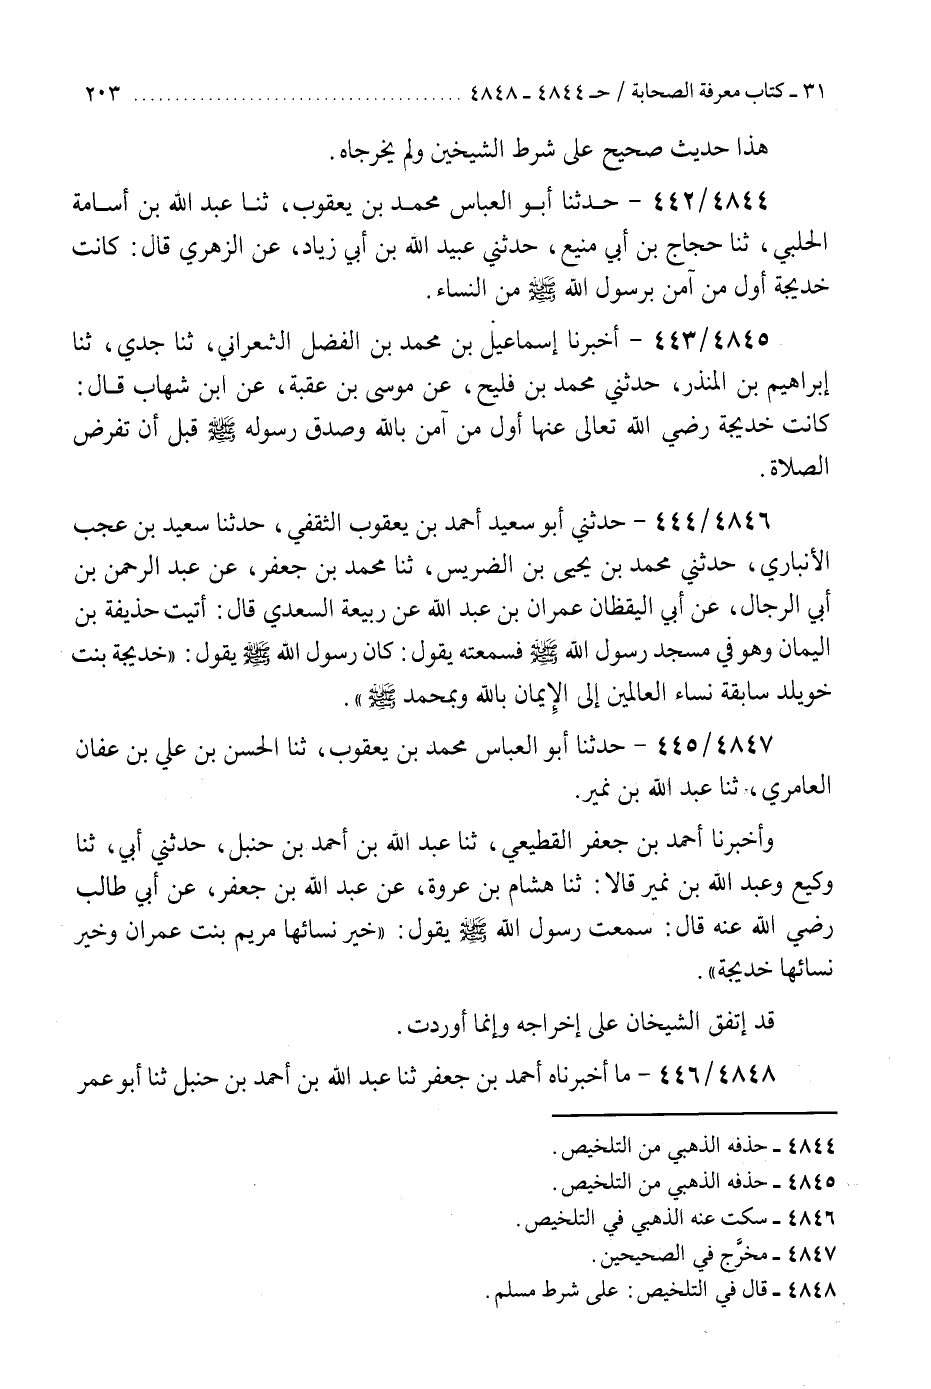 ٣١ ـ كتاب معرفة الصحابة / حـ ٤٨٤٤ ـ ٤٨٤٨ ........................................ ٢٠٣
هذا حديث صحيح على شرط الشيخين ولم يخرجاه.
٤٤٢/٤٨٤٤ ـ حدثنا أبو العباس محمد بن يعقوب، ثنا عبد الله بن أسامة
الحلبي، ثنا حجاج بن أبي منيع، حدثني عبيد الله بن أبي زياد، عن الزهري قال: كانت
خديجة أول من آمن برسول الله ﷺ من النساء.
٤٤٣/٤٨٤٥ ـ أخبرنا إسماعيل بن محمد بن الفضل الشعراني، ثنا جدي، ثنا
إبراهيم بن المنذر، حدثني محمد بن فليح، عن موسى بن عقبة، عن ابن شهاب قال:
كانت خديجة رضي الله تعالى عنها أول من آمن بالله وصدق رسوله ﷺ قبل أن تفرض
الصلاة.
٤٤٤/٤٨٤٦ ـ حدثني أبو سعيد أحمد بن يعقوب الثقفي، حدثنا سعيد بن عجب
الأنباري، حدثني محمد بن يحيى بن الضريس، ثنا محمد بن جعفر، عن عبد الرحمن بن
أبي الرجال، عن أبي اليقظان عمران بن عبد الله عن ربيعة السعدي قال: أتيت حذيفة بن
اليمان وهو في مسجد رسول الله ﷺ فسمعته يقول: كان رسول الله ﷺ يقول: «خديجة بنت
خويلد سابقة نساء العالمين إلى الإيمان بالله وبمحمد ﷺ».
٤٤٥/٤٨٤٧ ـ حدثنا أبو العباس محمد بن يعقوب، ثنا الحسن بن علي بن عفان
العامري، ثنا عبد الله بن نمير.
وأخبرنا أحمد بن جعفر القطيعي، ثنا عبد الله بن أحمد بن حنبل، حدثني أبي، ثنا
وكيع وعبد الله بن نمير قالا: ثنا هشام بن عروة، عن عبد الله بن جعفر، عن أبي طالب
رضي الله عنه قال: سمعت رسول الله ﷺ يقول: «خير نسائها مريم بنت عمران وخير
نسائها خديجة».
قد إتفق الشيخان على إخراجه وإنما أوردت.
٤٤٦/٤٨٤٨ ـ ما أخبرناه أحمد بن جعفر ثنا عبد الله بن أحمد بن حنبل ثنا أبو عمر
٤٨٤٤ ـ حذفه الذهبي من التلخيص.
٤٨٤٥ ـ حذفه الذهبي من التلخيص.
٤٨٤٦ ـ سكت عنه الذهبي في التلخيص.
٤٨٤٧ ـ مخرَّج في الصحيحين.
٤٨٤٨ ـ قال في التلخيص: على شرط مسلم.